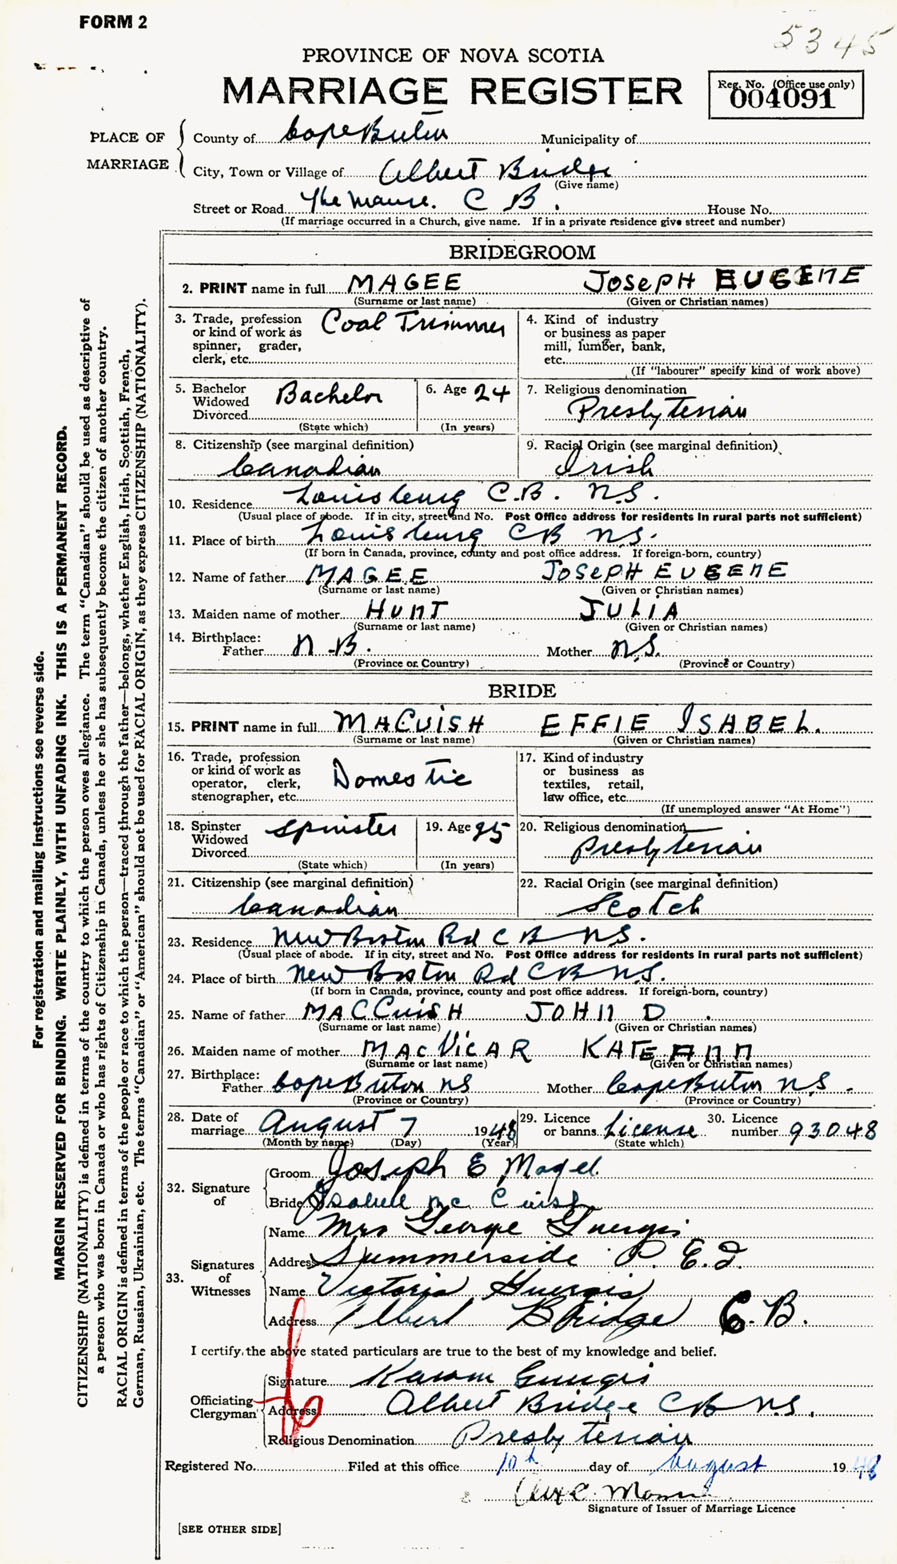 FORM 2
5345
PROVINCE OF NOVA SCOTIA
MARRIAGE REGISTER
Reg. No. (Office use only)
004091
PLACE OF MARRIAGE
County of Cape Breton Municipality of
City, Town or Village of Albert Bridge
(Give name)
Street or Road The Manse. C B. House No.
(If marriage occurred in a Church, give name. If in a private residence give street and number)
BRIDEGROOM
2. PRINT name in full MAGEE JOSEPH EUGENE
(Surname or last name) (Given or Christian names)
3. Trade, profession or kind of work as spinner, grader, clerk, etc. Coal Trimmer
4. Kind of industry or business as paper mill, lumber, bank, etc.
(If "labourer" specify kind of work above)
5. Bachelor Widowed Divorced Bachelor
(State which)
6. Age 24
(In years)
7. Religious denomination
Presbyterian
8. Citizenship (see marginal definition)
Canadian
9. Racial Origin (see marginal definition)
Irish
10. Residence Louisburg C.B. N.S.
(Usual place of abode. If in city, street and No. Post Office address for residents in rural parts not sufficient)
11. Place of birth Louisburg CB N.S.
(If born in Canada, province, county and post office address. If foreign-born, country)
12. Name of father MAGEE JOSEPH EUGENE
(Surname or last name) (Given or Christian names)
13. Maiden name of mother HUNT JULIA
(Surname or last name) (Given or Christian names)
14. Birthplace:
Father N.B. Mother N.S.
(Province or Country) (Province or Country)
BRIDE
15. PRINT name in full MACCUISH EFFIE ISABEL.
(Surname or last name) (Given or Christian names)
16. Trade, profession or kind of work as operator, clerk, stenographer, etc. Domestic
17. Kind of industry or business as textiles, retail, law office, etc.
(If unemployed answer "At Home")
18. Spinster Widowed Divorced Spinster
(State which)
19. Age 25
(In years)
20. Religious denomination
Presbyterian
21. Citizenship (see marginal definition)
Canadian
22. Racial Origin (see marginal definition)
Scotch
23. Residence New Boston Rd C B N.S.
(Usual place of abode. If in city, street and No. Post Office address for residents in rural parts not sufficient)
24. Place of birth New Boston Rd C B N.S.
(If born in Canada, province, county and post office address. If foreign-born, country)
25. Name of father MACCUISH JOHN D.
(Surname or last name) (Given or Christian names)
26. Maiden name of mother MACVICAR KATE ANN
(Surname or last name) (Given or Christian names)
27. Birthplace:
Father Cape Breton NS Mother Cape Breton N.S.
(Province or Country) (Province or Country)
28. Date of marriage August 7 1948
(Month by name) (Day) (Year)
29. Licence or banns License
(State which)
30. Licence number 93048
32. Signature of
Groom Joseph E Magee
Bride Isabell Mc Cuish
33. Signatures of Witnesses
Name Mrs George Guergis
Address Summerside P. E. I.
Name Victoria Guergis
Address Albert Bridge C.B.
I certify the above stated particulars are true to the best of my knowledge and belief.
Officiating Clergyman
Signature Karam Guergis
Address Albert Bridge CB N.S.
Religious Denomination Presbyterian
Registered No. Filed at this office 10th day of August 1948
Signature of Issuer of Marriage Licence
[SEE OTHER SIDE]
For registration and mailing instructions see reverse side.
MARGIN RESERVED FOR BINDING. WRITE PLAINLY, WITH UNFADING INK. THIS IS A PERMANENT RECORD.
CITIZENSHIP (NATIONALITY) is defined in terms of the country to which the person owes allegiance. The term "Canadian" should be used as descriptive of
a person who was born in Canada or who has rights of Citizenship in Canada, unless he or she has subsequently become the citizen of another country.
RACIAL ORIGIN is defined in terms of the people or race to which the person—traced through the father—belongs, whether English, Irish, Scottish, French,
German, Russian, Ukrainian, etc. The terms "Canadian" or "American" should not be used for RACIAL ORIGIN, as they express CITIZENSHIP (NATIONALITY).